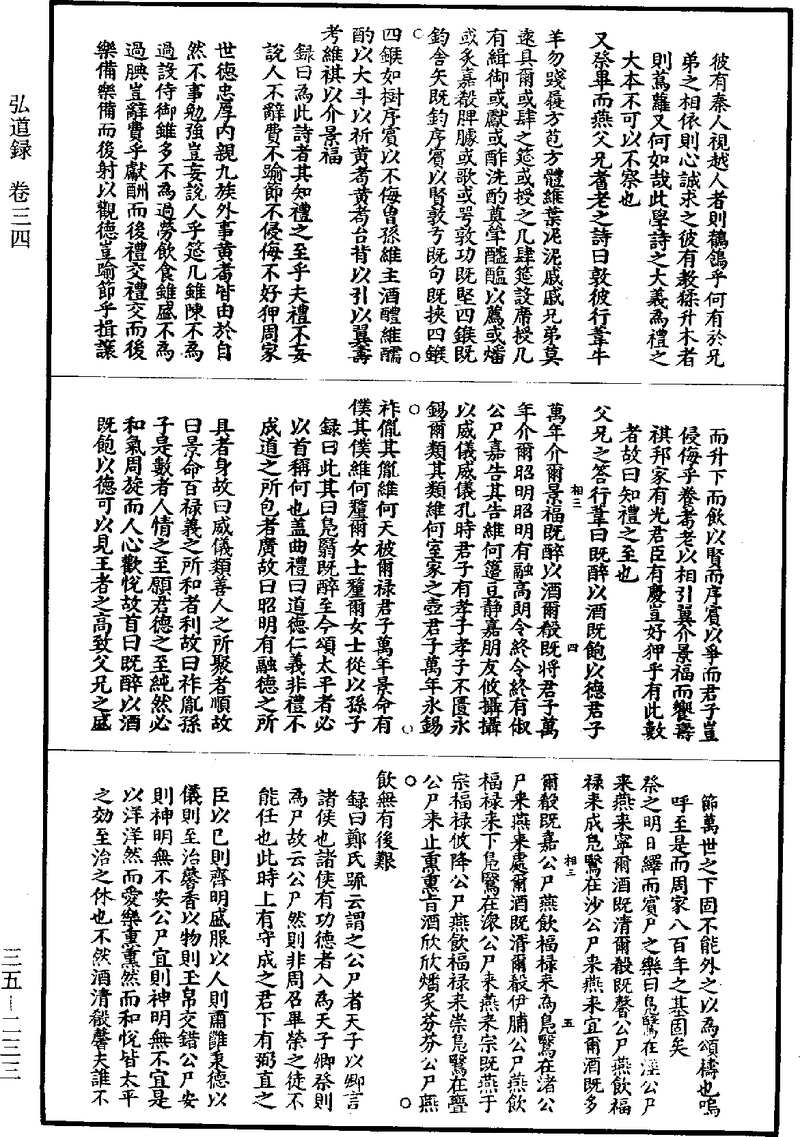 弘道録　卷三四
彼有秦人視越人者則鶺鴒乎何有於兄
弟之相依則心誠求之彼有教猱升木者
則蔦蘿又何如哉此學詩之大義為禮之
大本不可以不察也
又祭畢而燕父兄耆老之詩曰敦彼行葦牛
羊勿踐履方苞方體維葉泥泥戚戚兄弟莫
遠具爾或肆之筵或授之几肆筵設席授几
有緝御或獻或酢洗酌奠斝醓醢以薦或燔
或炙嘉殽脾臄或歌或咢敦弓既堅四鍭既
鈞舍矢既鈞序賓以賢敦弓既句既挾四鍭
四鍭如樹序賓以不侮曾孫維主酒醴維醹
酌以大斗以祈黄耇黄耇台背以引以翼壽
考維祺以介景福
録曰為此詩者其知禮之至乎夫禮不妄
說人不辭費不踰節不侵侮不好狎周家
世德忠厚内親九族外事黄耇皆由於自
然不事勉強豈妄說人乎筵几雖陳不為
過設侍御雖多不為過勞飲食雖盛不為
過腆豈辭費乎獻酬而後禮交禮交而後
樂備樂備而後射以觀德豈踰節乎揖讓
而升下而飲以賢而序賓以爭而君子豈
侵侮乎養耇老以相引翼介景福而饗壽
祺邦家有光君臣有慶豈好狎乎有此數
者故曰知禮之至也
父兄之答行葦曰既醉以酒既飽以德君子
萬年介爾景福既醉以酒爾殽既將君子萬
年介爾昭明昭明有融高朗令終令終有俶
公尸嘉告其告維何籩豆靜嘉朋友攸攝攝
以威儀威儀孔時君子有孝子孝子不匱永
錫爾類其類維何室家之壼君子萬年永錫
祚胤其胤維何天被爾禄君子萬年景命有
僕其僕維何釐爾女士釐爾女士從以孫子
録曰此其曰鳧鷖既醉至今頌太平者必
以首稱何也蓋曲禮曰道德仁義非禮不
成道之所包者廣故曰昭明有融德之所
具者身故曰威儀類善人之所聚者順故
曰景命百禄義之所和者利故曰祚胤孫
子是數者人情之至願君德之至純然必
和氣周旋而人心歡悅故首曰既醉以酒
既飽以德可以見王者之高致父兄之盛
節萬世之下固不能外之以為頌禱也嗚
呼至是而周家八百年之基固矣
祭之明日繹而賓尸之樂曰鳧鷖在涇公尸
來燕來寧爾酒既清爾殽既馨公尸燕飲福
禄來成鳧鷖在沙公尸來燕來宜爾酒既多
爾殽既嘉公尸燕飲福禄來為鳧鷖在渚公
尸來燕來處爾酒既湑爾殽伊脯公尸燕飲
福禄來下鳧鷖在潀公尸來燕來宗既燕于
宗福禄攸降公尸燕飲福禄來崇鳧鷖在亹
公尸來止熏熏旨酒欣欣燔炙芬芬公尸燕
飲無有後艱
録曰鄭氏䟽云謂之公尸者天子以卿言
諸侯也諸侯有功德者入為天子卿祭則
為尸故云公尸然則非周召畢榮之徒不
能任也此時上有守成之君下有弼直之
臣以已則齊明盛服以人則肅雝秉德以
儀則至治馨香以物則玉帛交錯公尸安
則神明無不安公尸宜則神明無不宜是
以洋洋然而愛樂熏熏然而和悅皆太平
之効至治之休也不然酒清殽馨夫誰不
相三
四
相三
五
三五—二三三